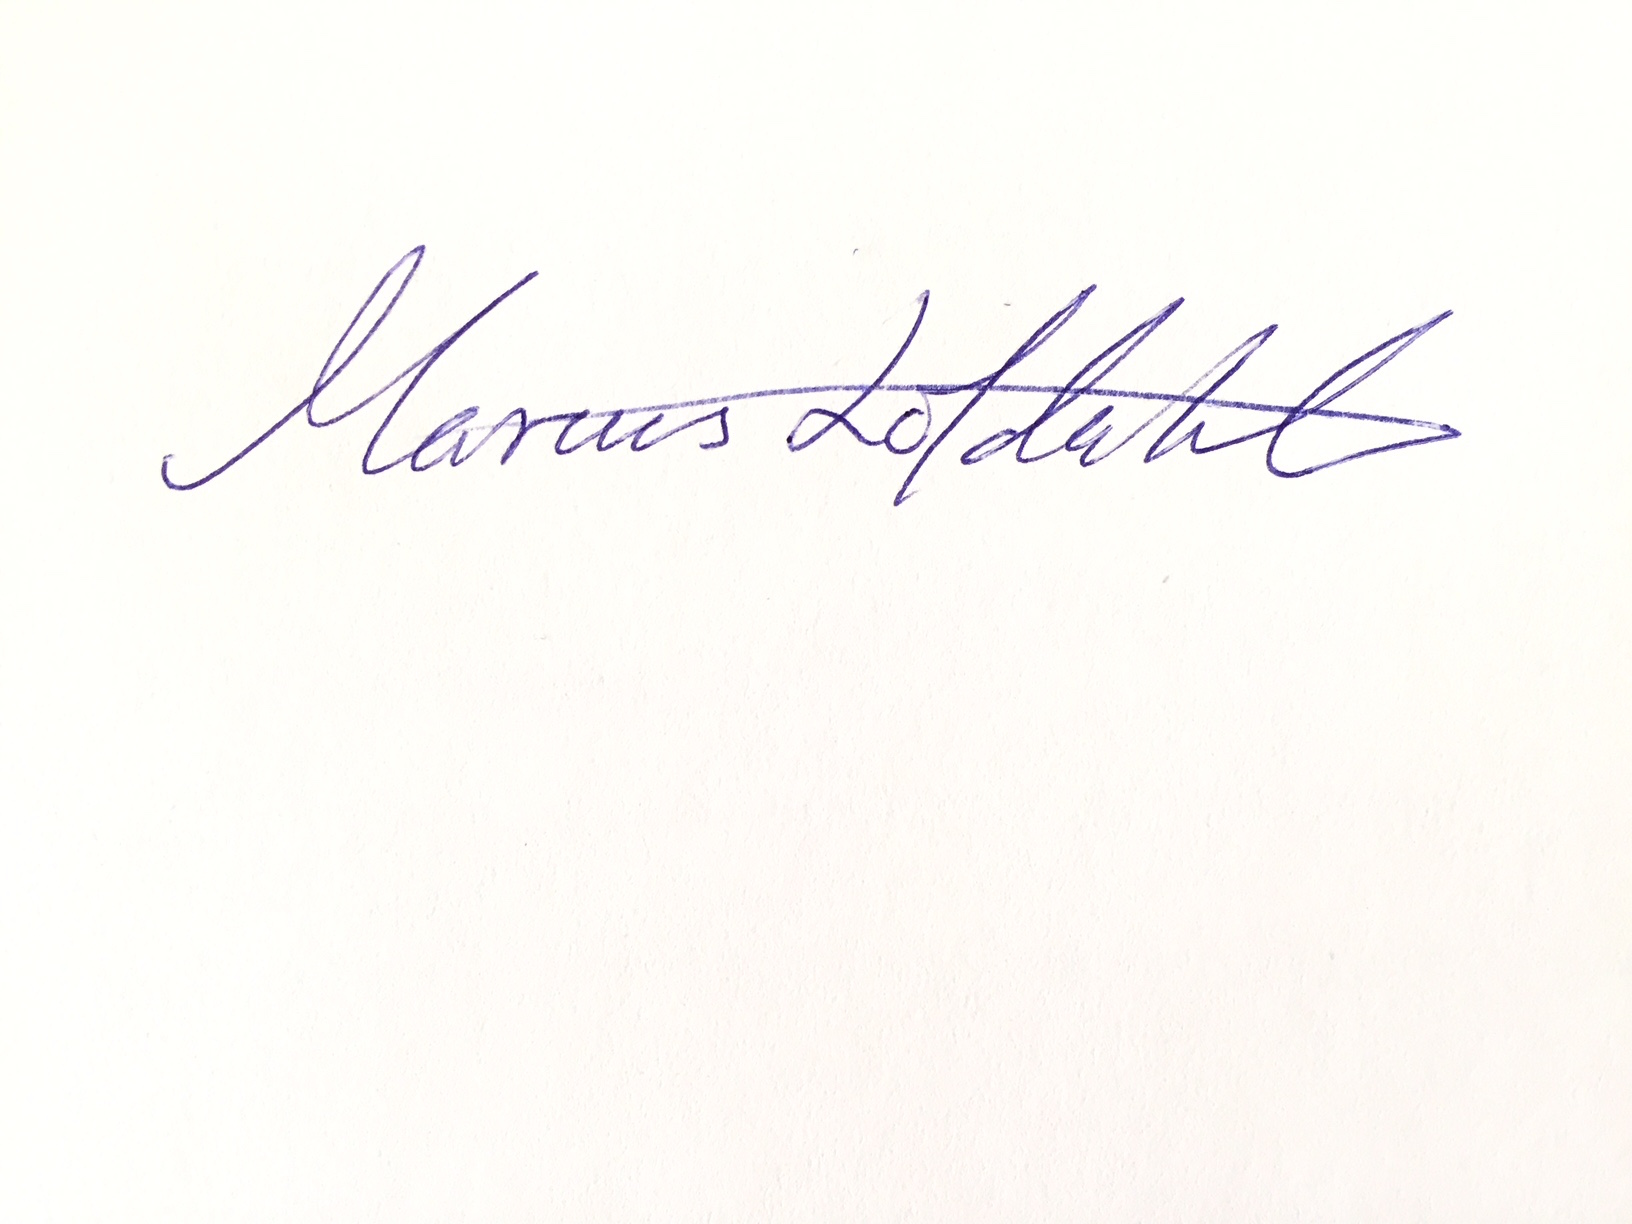 Marcus Lofdahl